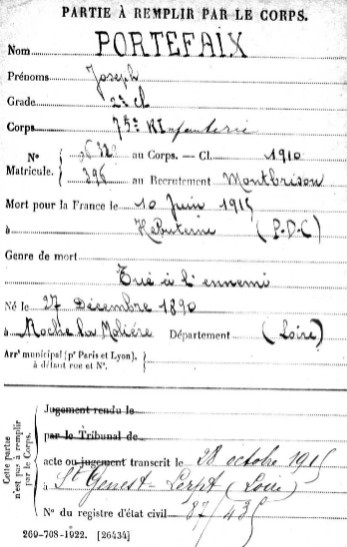 PARTIE À REMPLIR PAR LE CORPS.
Nom PORTEFAIX
Prénoms Joseph
Grade 2e cl
Corps 75e RInfanterie
N° au Corps. — Cl. 1910
Matricule. 396 au Recrutement Montbrison
Mort pour la France le 10 Juin 1915
à Hébuterne (P.D.C)
Genre de mort
Tué à l'ennemi
Né le 27 Décembre 1890
à Roche la Molière Département (Loire)
Arrt municipal (pr Paris et Lyon),
à défaut rue et N°.
Cette partie n'est pas à remplir par le Corps.
Jugement rendu le
par le Tribunal de
acte ou jugement transcrit le 28 octobre 1915
à St Genest-Lerpt (Loire)
N° du registre d'état civil 87/43
269-708-1922. [26434]